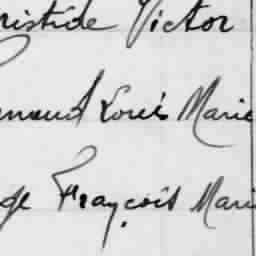 ristide Victor
Louis Marie
ge François Mari